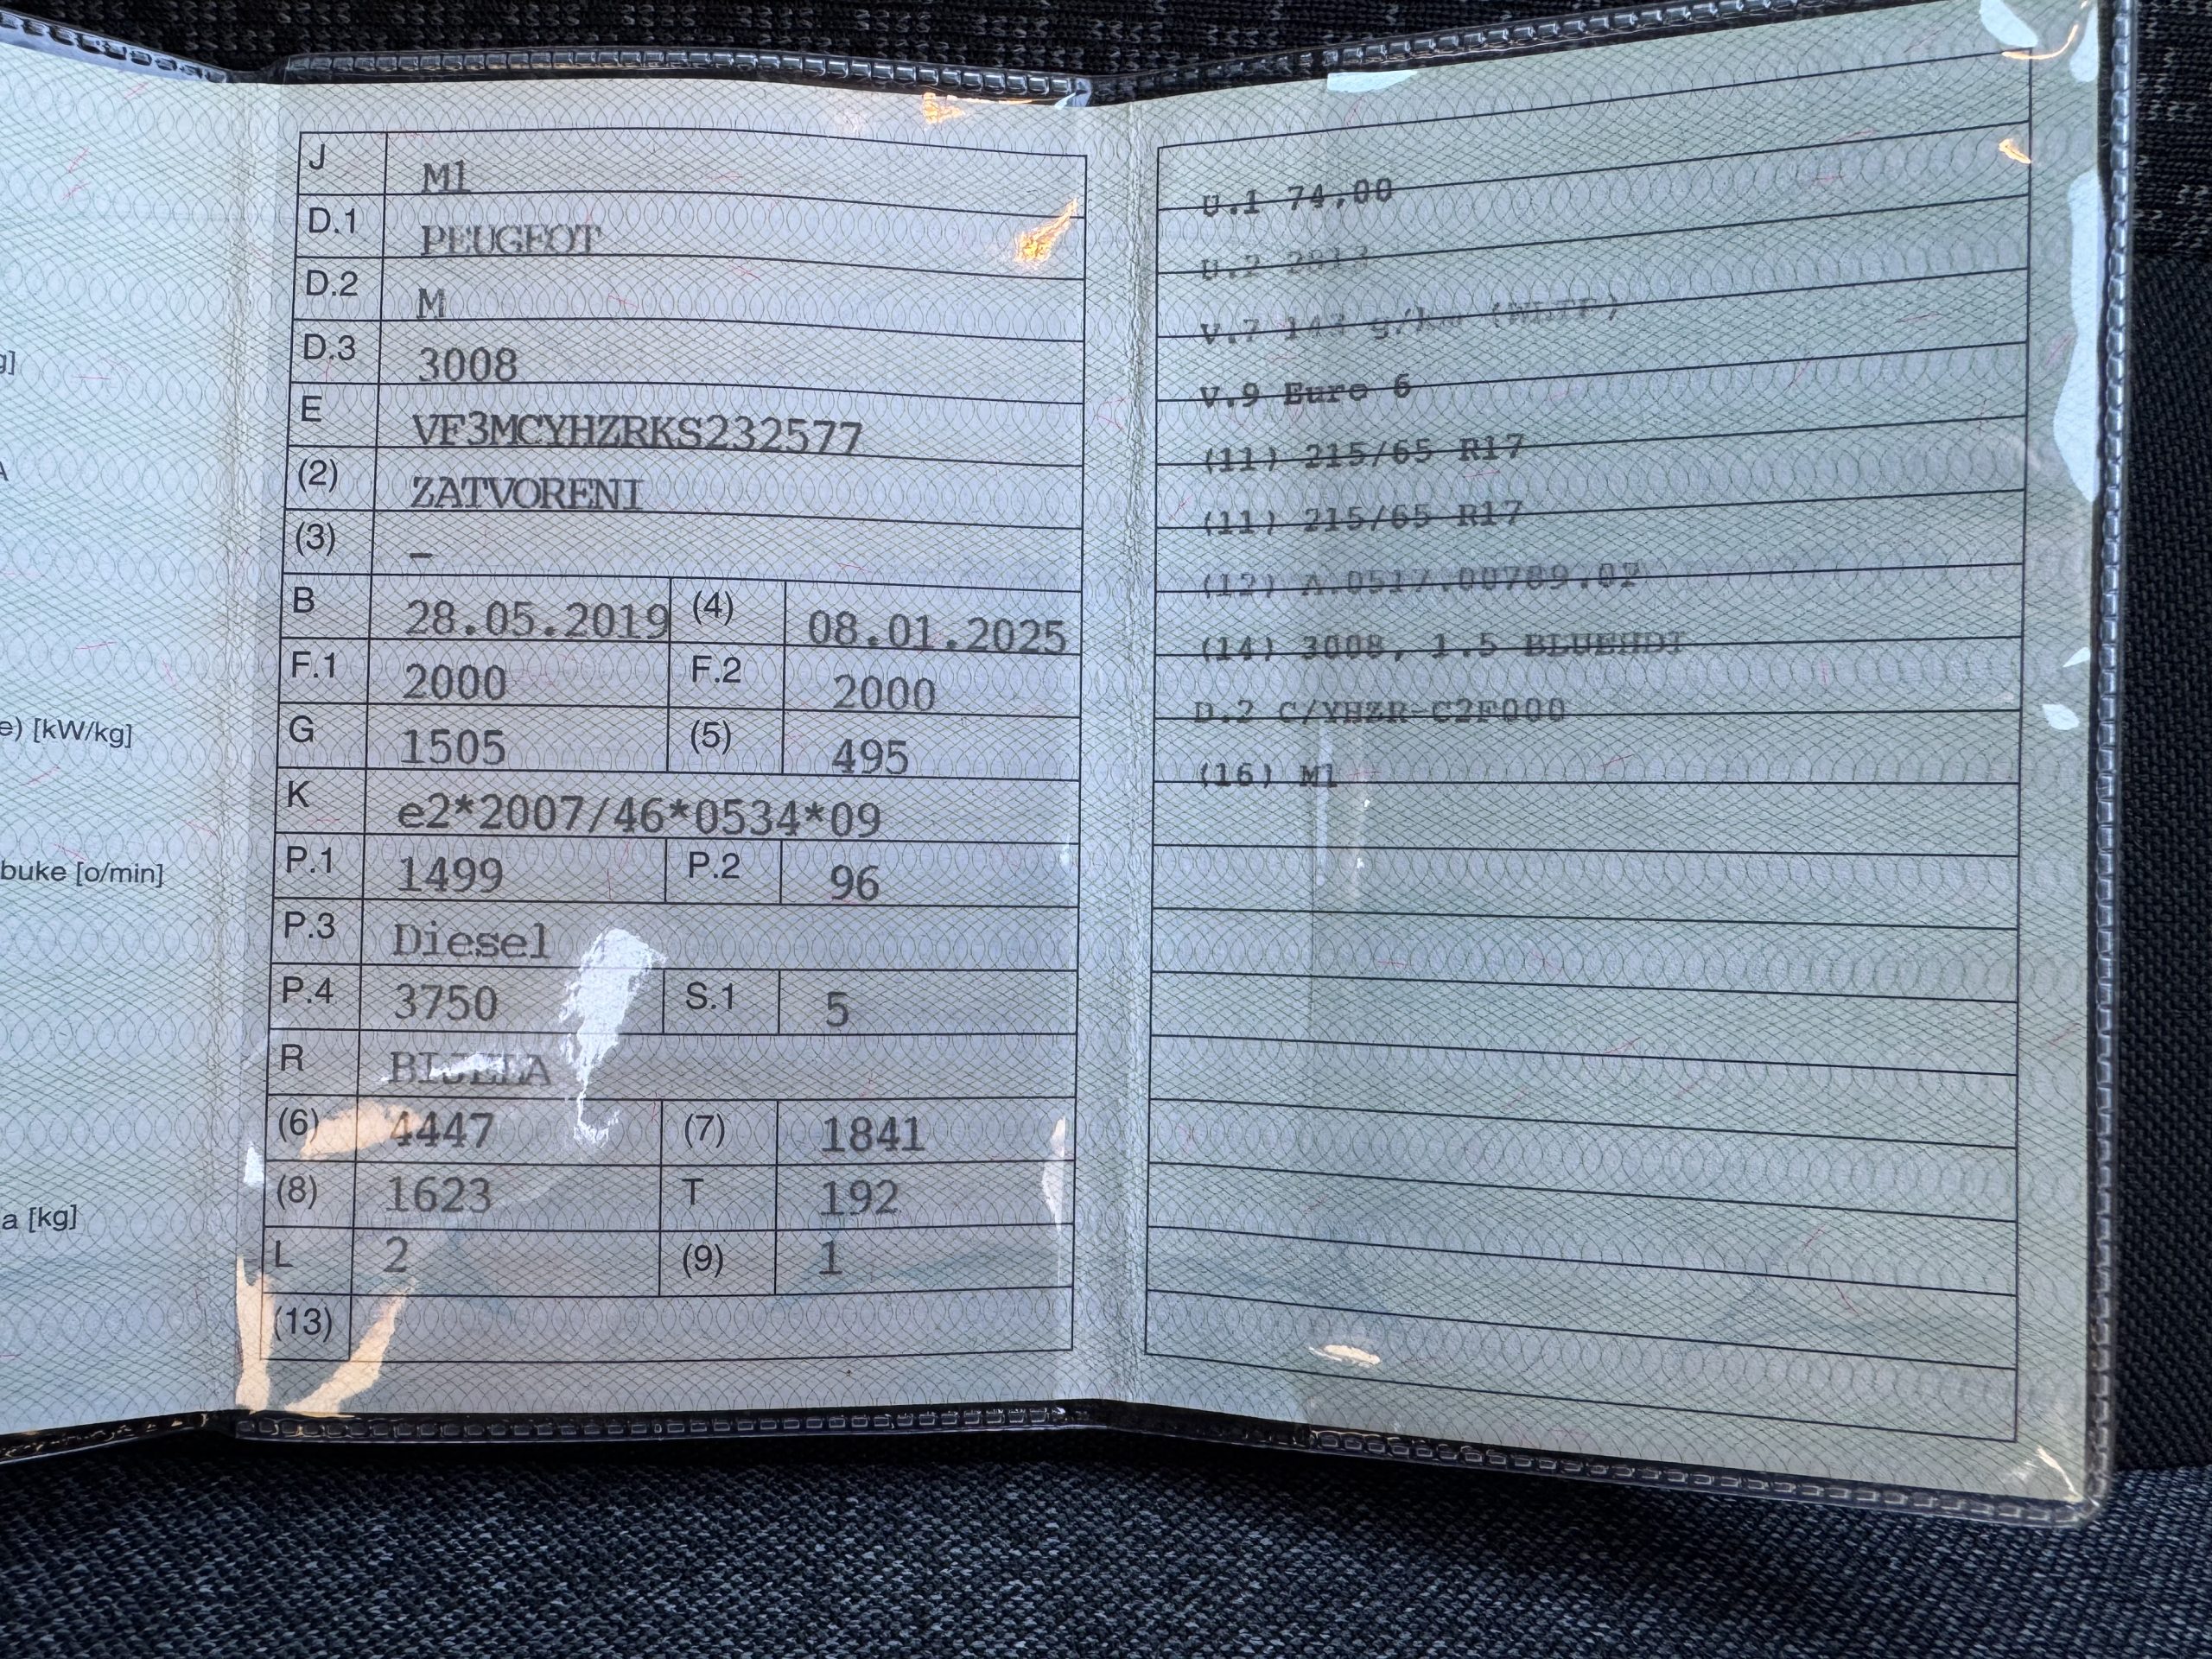 g]
e) [kW/kg]
buke [o/min]
a [kg]
J M1
D.1 PEUGEOT
D.2 M
D.3 3008
E VF3MCYHZRKS232577
(2) ZATVORENI
(3) –
B 28.05.2019 (4) 08.01.2025
F.1 2000 F.2 2000
G 1505 (5) 495
K e2*2007/46*0534*09
P.1 1499 P.2 96
P.3 Diesel
P.4 3750 S.1 5
R BIJELA
(6) 4447 (7) 1841
(8) 1623 T 192
L 2 (9) 1
(13)
U.1 74,00
U.2
V.7 g/km (WLTP)
V.9 Euro 6
(11) 215/65 R17
(11) 215/65 R17
(12)
(14) 3008, 1.5 BLUEHDI
D.2 C/YHZR-C2F000
(16) M1